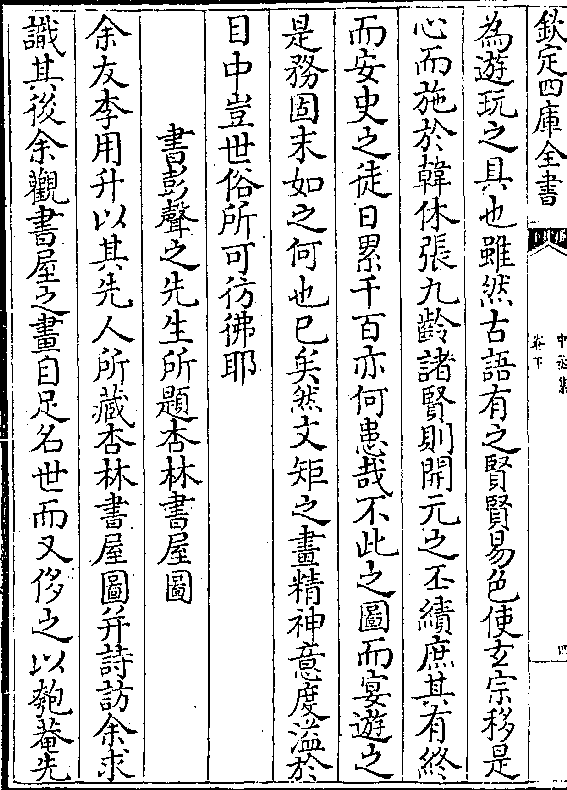 欽定四庫全書
中丞集
卷下
四
為遊玩之具也雖然古語有之賢賢易色使玄宗移是
心而施於韓休張九齡諸賢則開元之丕績庶其有終
而安史之徒日累千百亦何患哉不此之圖而宴遊之
是務固末如之何也已矣然文矩之畫精神意度溢於
目中豈世俗所可彷彿耶
書彭聲之先生所題杏林書屋圖
余友李用升以其先人所藏杏林書屋圖并詩訪余求
識其後余觀書屋之畫自足名世而又侈之以匏菴先